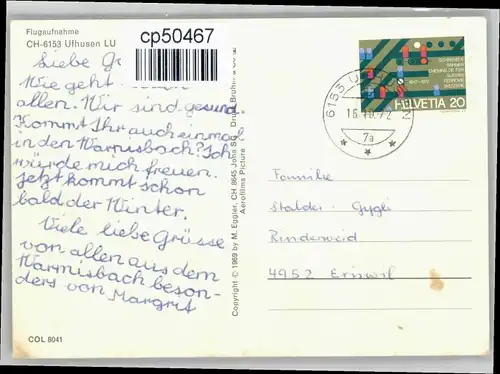 Flugaufnahme
CH-6153 Ufhusen LU
cp50467
Liebe
Wie geht
allen. Wir sind gesund.
Kommt Ihr auch einmal
in den Warmisbach? Ich
würde mich freuen.
Jetzt kommt schon
bald der Winter.
Viele liebe Grüsse
von allen aus dem
Warmisbach beson-
ders von Margrit
COL 8041
Copyright © 1969 by M. Eggler, CH 8645 Jona SG Druck: Bruhin
Aerofilms Picture
HELVETIA 20
6153 U
16.10.72
7a
Familie
Stalder-Gygli
Rinderweid
4952 Eriswil